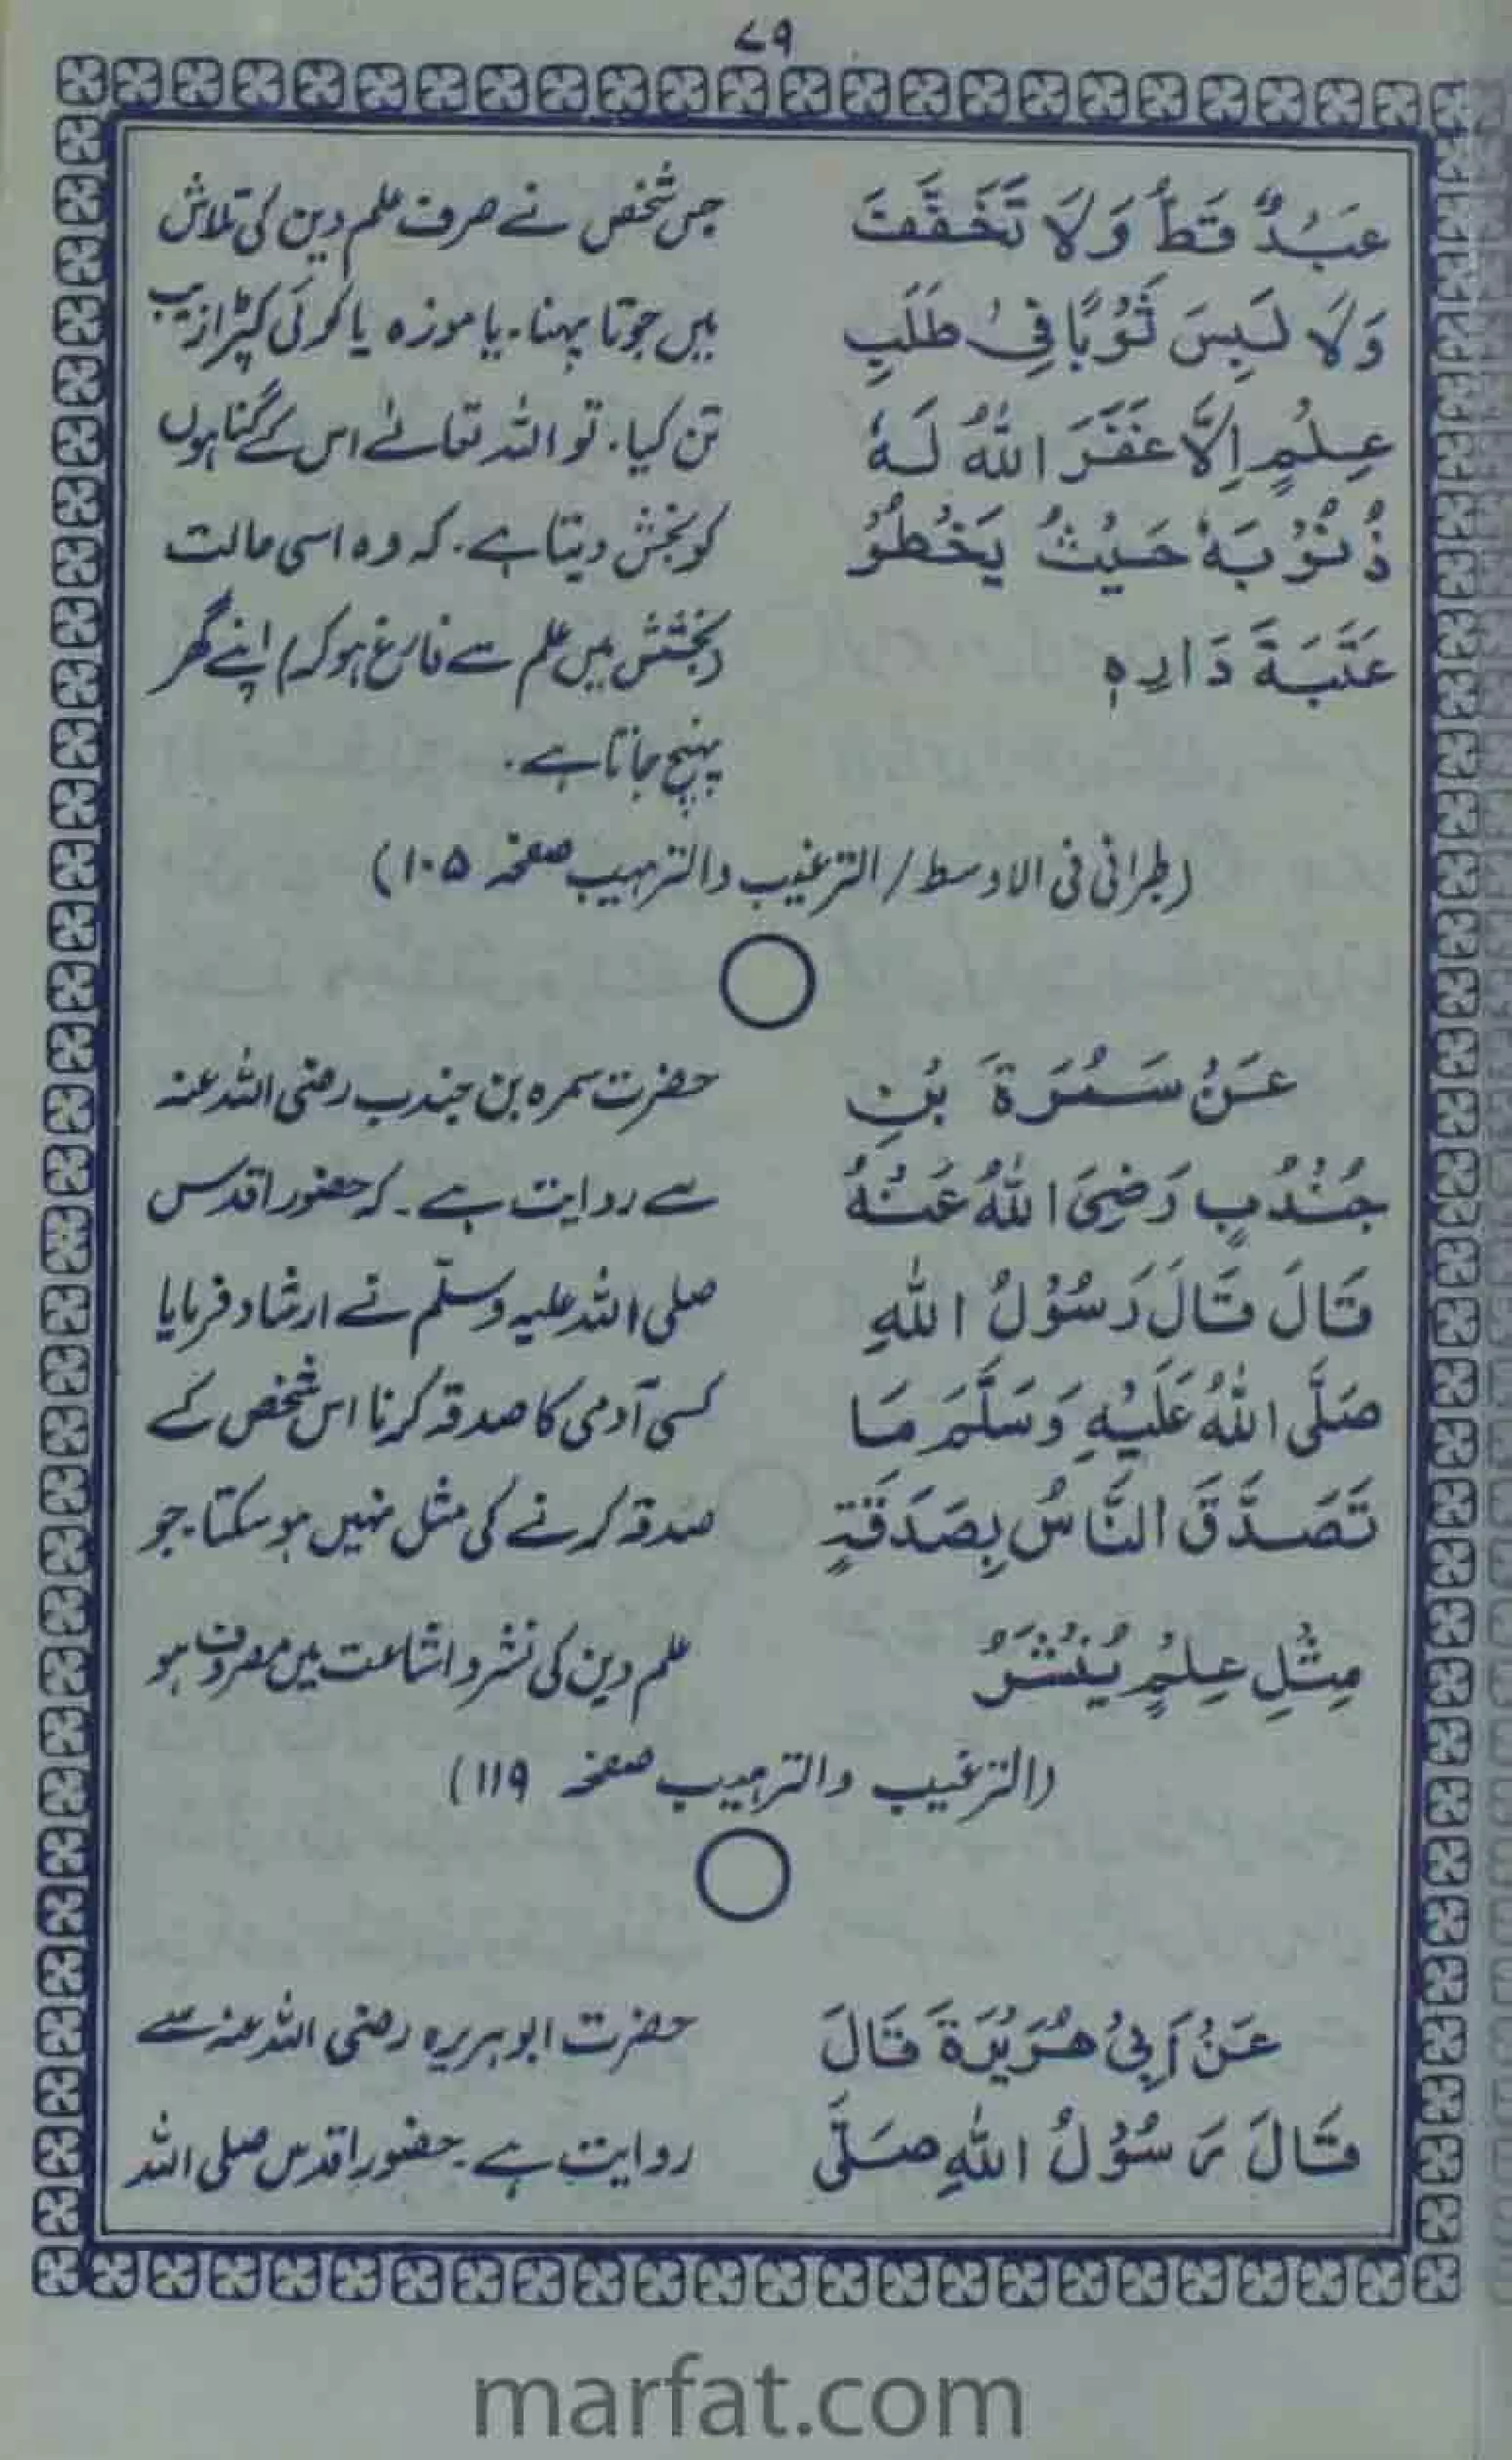 ۷۹
عَبْدٌ قَطُّ وَلَا تَخَفَّفَ
وَلَا لَبِسَ ثَوْبًا فِيْ طَلَبِ
عِلْمٍ اِلَّا غَفَرَ اللّٰهُ لَهٗ
ذُنُوْبَهٗ حَيْثُ يَخْطُوْ
عَتَبَةَ دَارِهٖ
جس شخص نے صرف علم دین کی تلاش
میں جوتا پہنا۔ یا موزہ یا کوئی کپڑا زیب
تن کیا۔ تو اللہ تعالےٰ اس کے گناہوں
کو بخش دیتا ہے۔ کہ وہ اسی حالت
(بخشش میں علم سے فارغ ہو کر) اپنے گھر
پہنچ جاتا ہے۔
(طبرانی فی الاوسط / الترغیب والترہیب صفحہ ۱۰۵)
عَنْ سَمُرَةَ بْنِ
جُنْدُبٍ رَضِيَ اللّٰهُ عَنْهُ
قَالَ قَالَ رَسُوْلُ اللّٰهِ
صَلَّى اللّٰهُ عَلَيْهِ وَسَلَّمَ مَا
تَصَدَّقَ النَّاسُ بِصَدَقَةٍ
مِثْلِ عِلْمٍ يُنْشَرُ
حضرت سمرہ بن جندب رضی اللہ عنہ
سے روایت ہے۔ کہ حضور اقدس
صلی اللہ علیہ وسلّم نے ارشاد فرمایا
کسی آدمی کا صدقہ کرنا اس شخص کے
صدقہ کرنے کی مثل نہیں ہو سکتا۔ جو
علم دین کی نشر و اشاعت میں مصروف ہو
(الترغیب والترہیب صفحہ ۱۱۹)
عَنْ اَبِيْ هُرَيْرَةَ قَالَ
قَالَ رَسُوْلُ اللّٰهِ صَلَّى
حضرت ابوہریرہ رضی اللہ عنہ سے
روایت ہے۔ حضور اقدس صلی اللہ
marfat.com